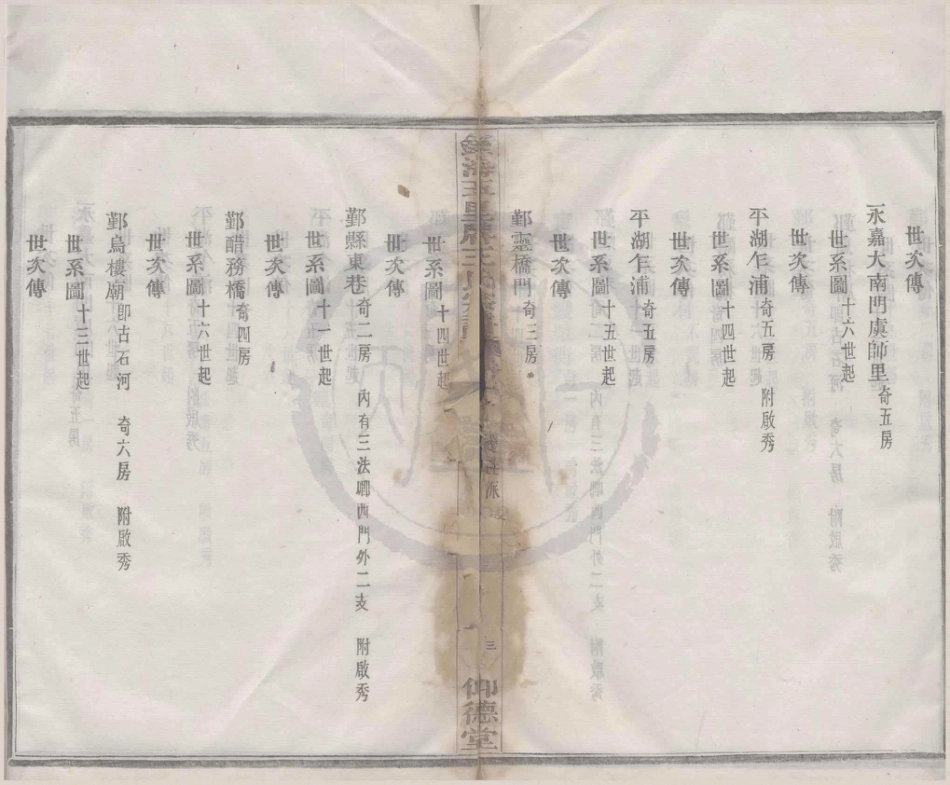 世次傳
永嘉大南門虞師里奇五房
世系圖十六世起
世次傳
平湖乍浦奇五房 附啟秀
世系圖十四世起
世次傳
平湖乍浦奇五房
世系圖十五世起
世次傳
鄞靈橋門奇三房
三
仰德堂
世系圖十四世起
世次傳
鄞縣東巷奇二房 內有三法卿西門外二支 附啟秀
世系圖十一世起
世次傳
鄞醋務橋奇四房
世系圖十六世起
世次傳
鄞烏樓廟即古石河 奇六房 附啟秀
世系圖十三世起
世次傳